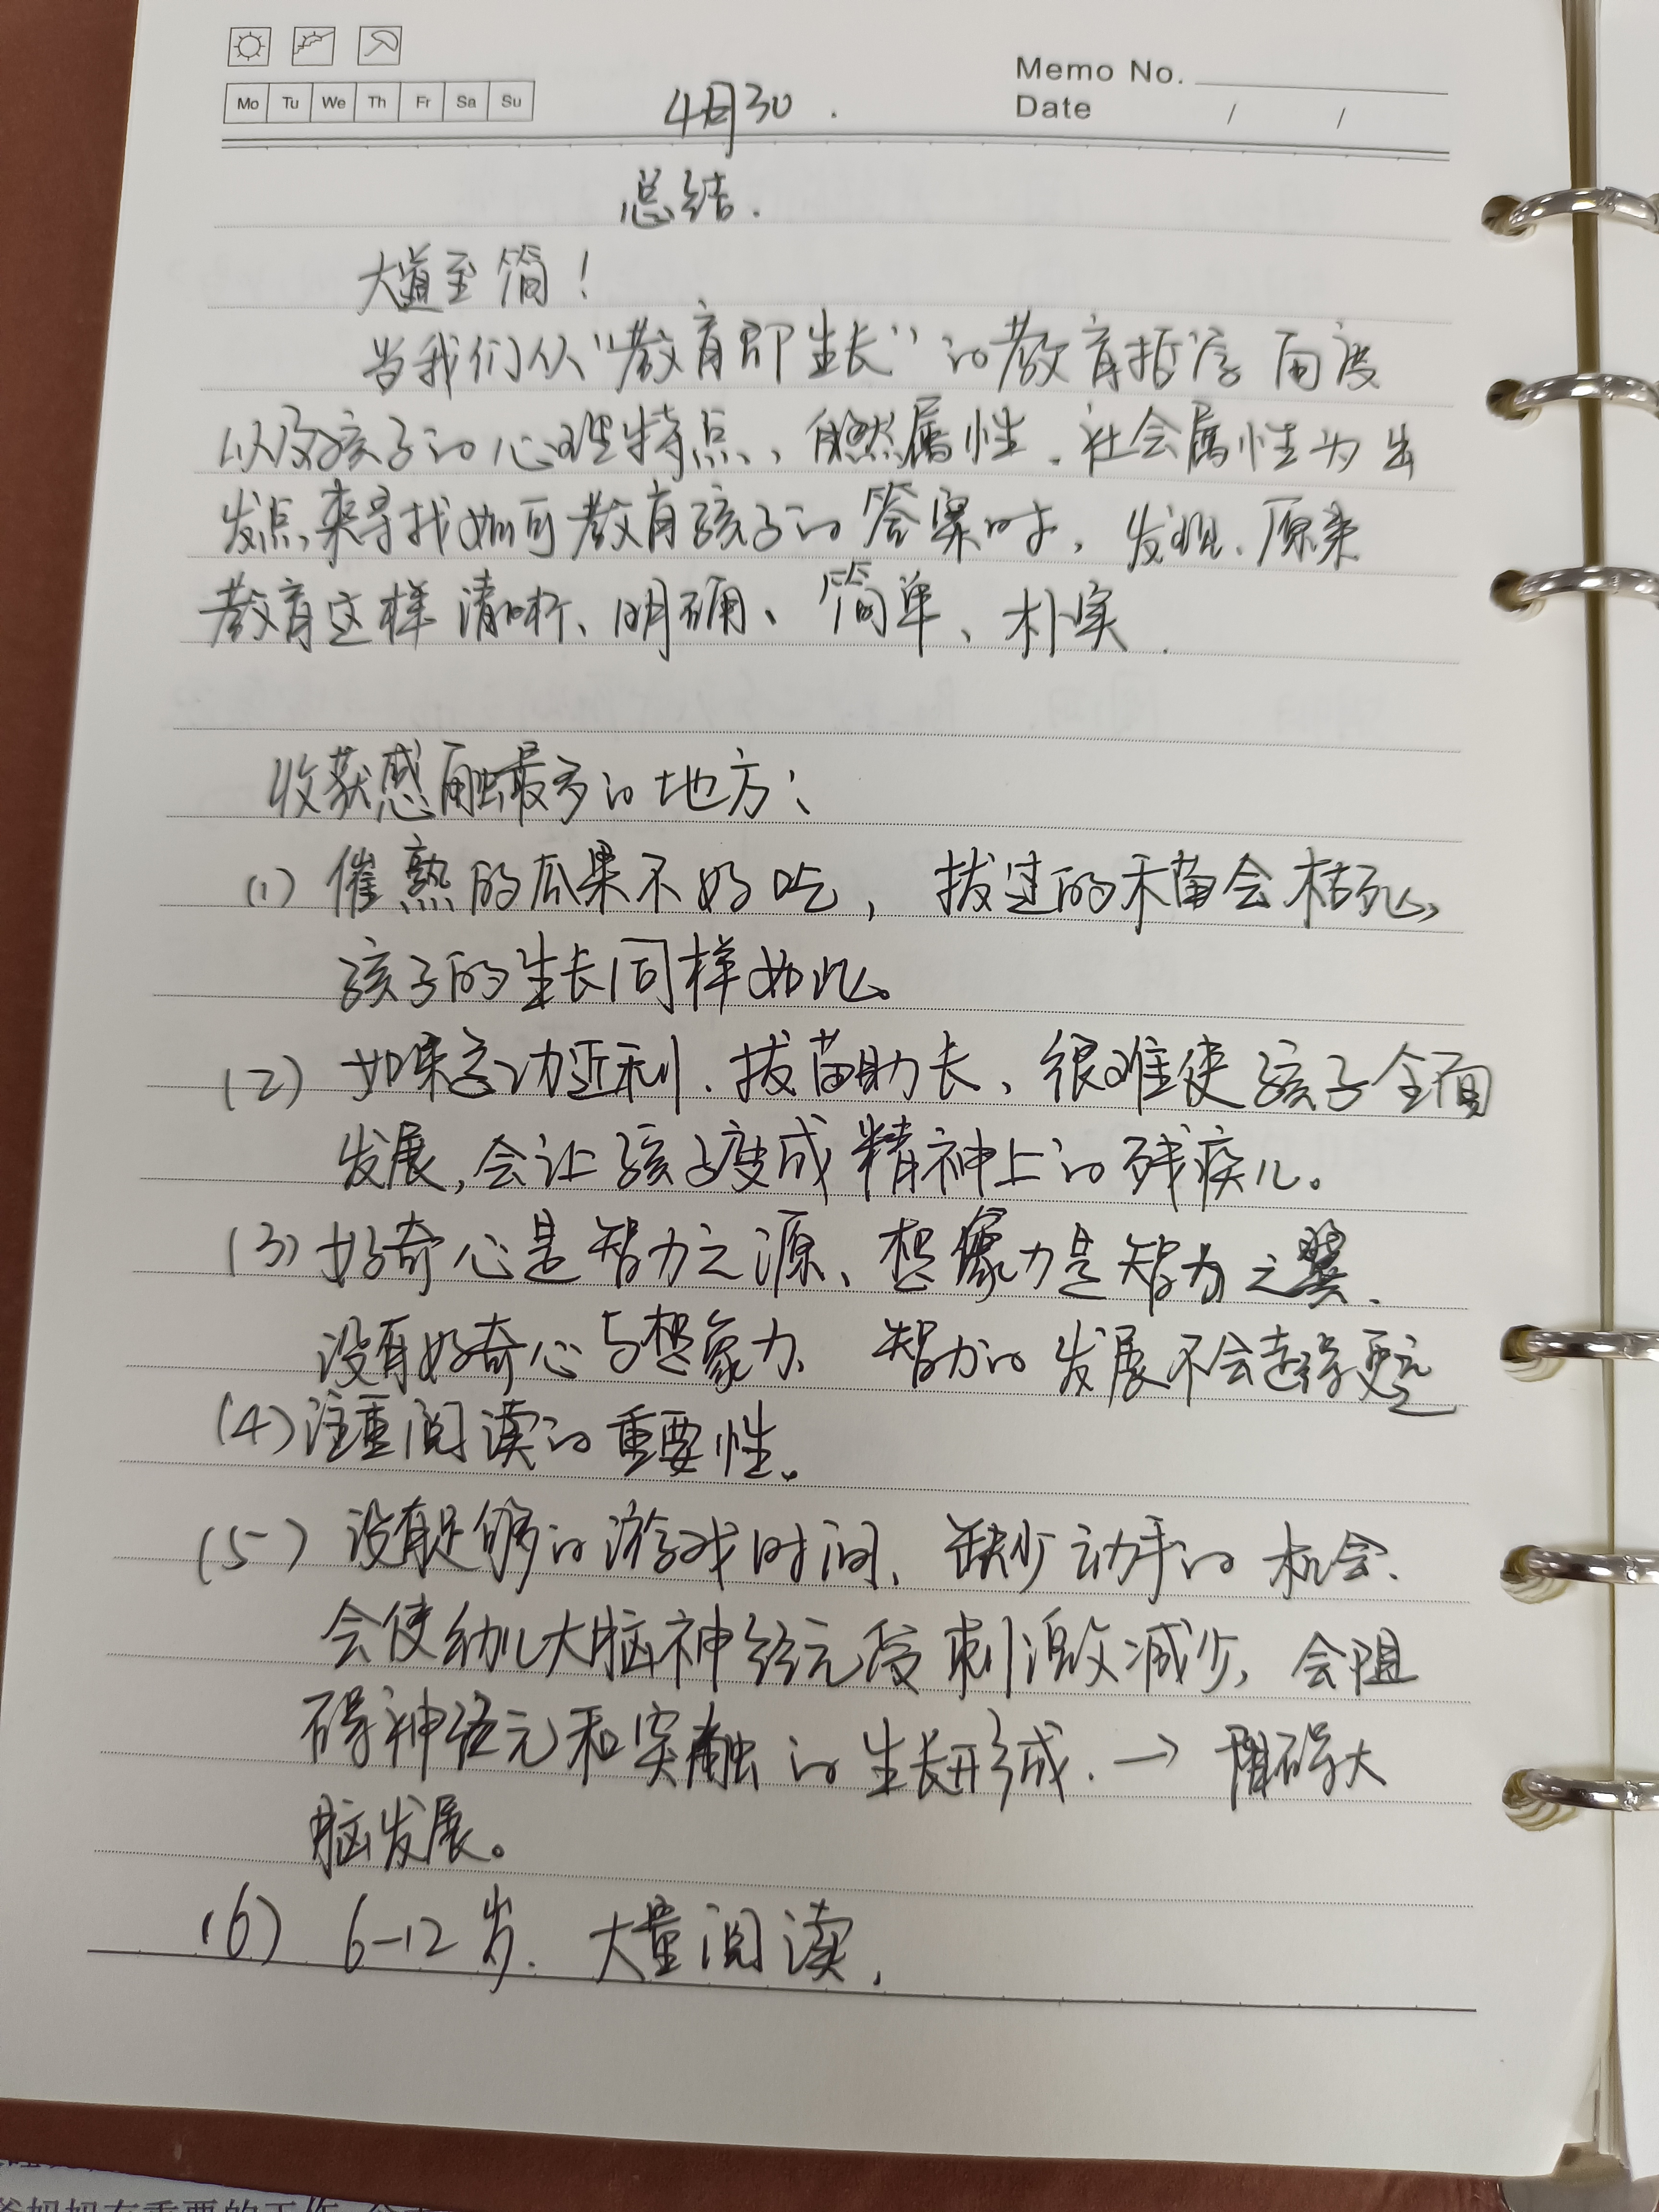 Memo No.
Mo Tu We Th Fr Sa Su
Date / /
4月30.
总结.
大道至简!
当我们从“教育即生长”的教育哲学角度
以及孩子的心理特点、自然属性、社会属性为出
发点,来寻找如何教育孩子的答案时,发现,原来
教育这样清晰、明确、简单、朴实.
收获感触最多的地方:
(1) 催熟的瓜果不好吃,拔过的禾苗会枯死,
孩子的生长同样如此。
(2) 如果急功近利、拔苗助长、很难使孩子全面
发展,会让孩子变成精神上的残疾儿。
(3) 好奇心是智力之源、想像力是智力之翼.
没有好奇心与想象力、智力的发展不会走得更远
(4) 注重阅读的重要性。
(5) 没有足够的游戏时间、缺少动手的机会.
会使幼儿大脑神经元受刺激减少,会阻
碍神经元和突触的生长形成.→阻碍大
脑发展。
(6) 6-12岁.大量阅读.